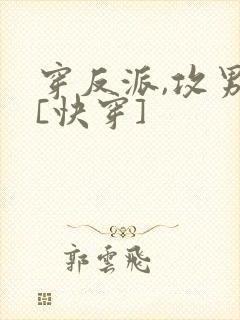 穿反派,攻男
[快穿]
郭雲飛